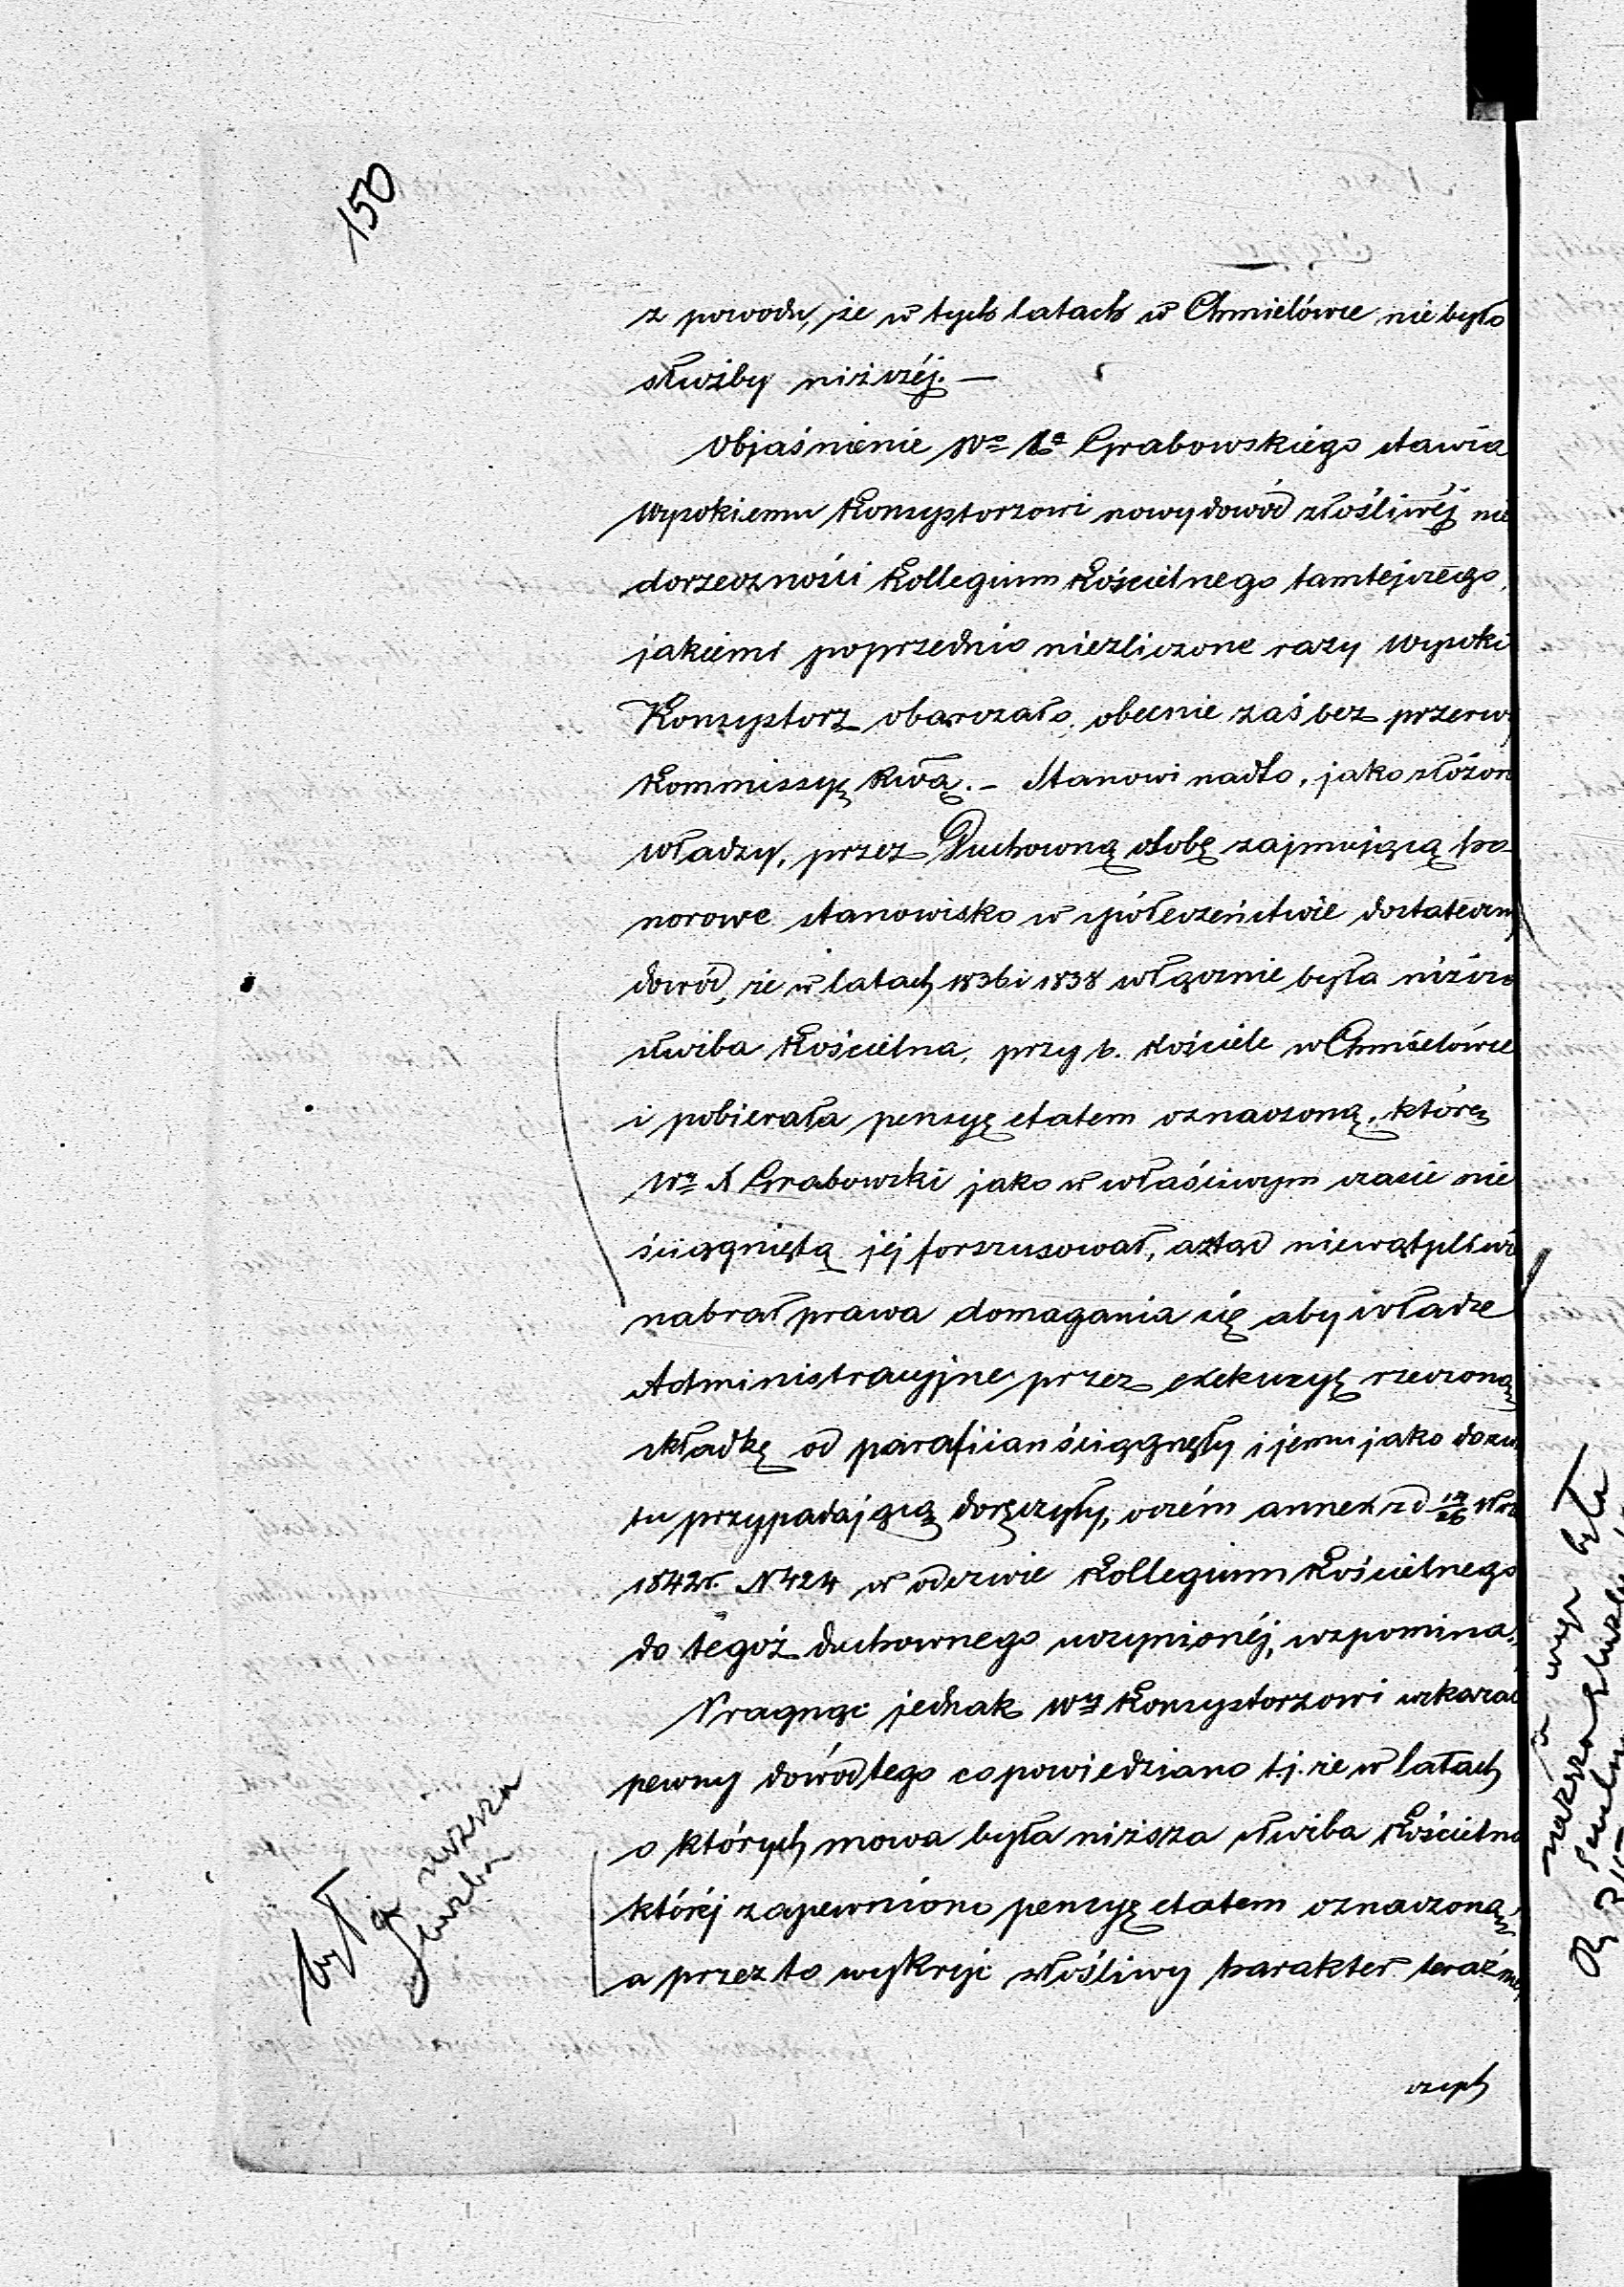 150
z powodu, że w tych latach w Chmielówce nie było
służby niższéj. —
Objaśnienie Wo Xa Grabowskiego stawia
Wysokiemu Konsystorzowi nowy dowód złośliwéj nie
dorzeczności Kollegium Kościelnego tamtejszego,
jakiemi poprzednio niezliczone razy Wysoki
Konsystorz obarczało, obecnie zaś bez przerwy
Kommissyę Rwą. – Stanowi nadto, jako złożon
władzy, przez Duchowną osobę zajmującą ho-
norowe stanowisko w społeczeństwie dostateczny
dowód, że w latach 1836 i 1838 włącznie była niższa
służba Kościelna, przy b. kościele w Chmielówce
i pobierała pensyę etatem oznaczoną, którą
Wy X Grabowski jako w właściwym czasie nie
ściągniętą jej forszusował, a ztąd niewątpliwie
nabrał prawa domagania się aby władze
Administracyjne przez exekucyę rzeczoną
składkę od parafiian ściągnęły i jemu jako
tu przypadającą doręczyły, o czém annex z d
1842r. N 424 w odezwie Kollegium Kościelnego
do tegoż duchownego uczynionéj, wspomina.
Pragnąc jednak Wmu Konsystorzowi wskazać
pewny dowód tego co powiedziano t.j. że w latach
o których mowa była niższa służba Kościelna
któréj zapewniono pensyę etatem oznaczoną
a przez to wykryć złośliwy harakter teraźniej
szych
była niższa
służba
była
niższa służba